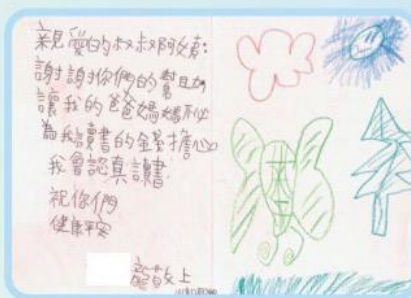 親愛的叔叔阿姨:
謝謝你們的幫助
讓我的爸爸媽媽不必
為我讀書的錢擔心
我會認真讀書
祝你們
健康平安
敬上